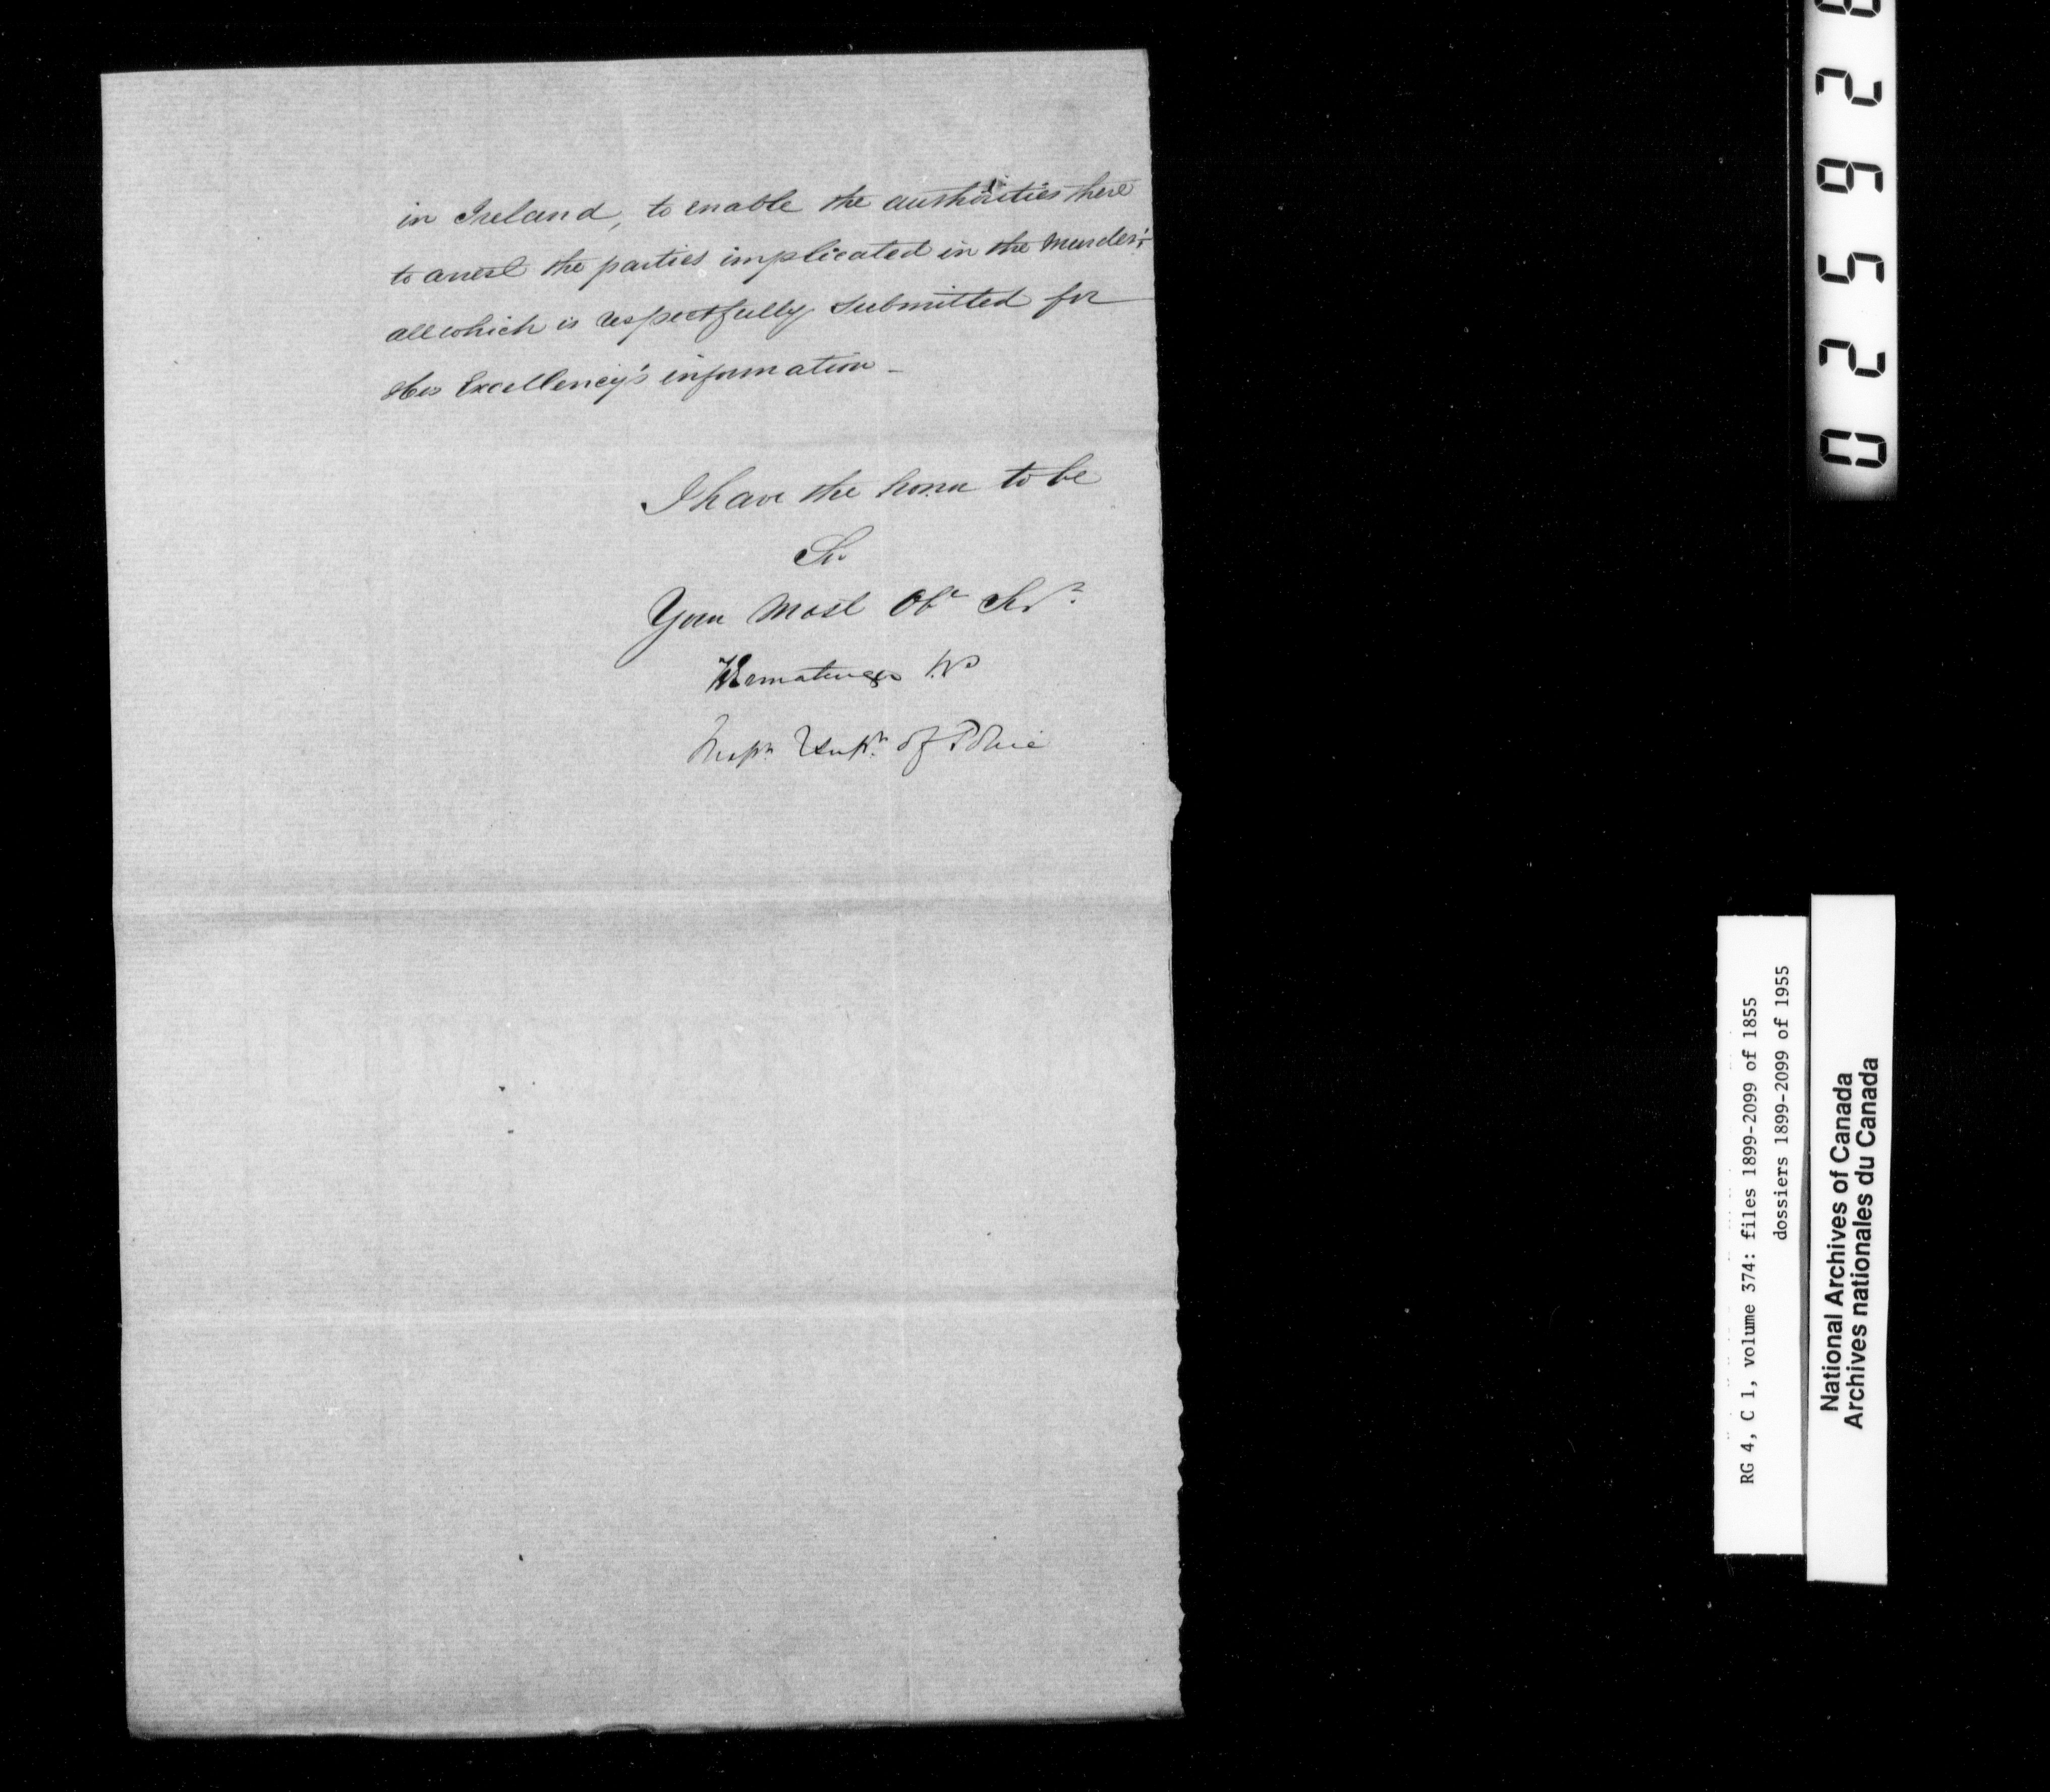 in Ireland, to enable the authorities there
to arrest the parties implicated in the Murder;
all which is respectfully submitted for
His Excellency's information _
I have the honor to be
Sir
Your Most Obt Servt
Ermatinger
Inspr & Supt of Police
025928
RG 4, C 1, volume 374: files 1899-2099 of 1855
dossiers 1899-2099 of 1955
National Archives of Canada
Archives nationales du Canada